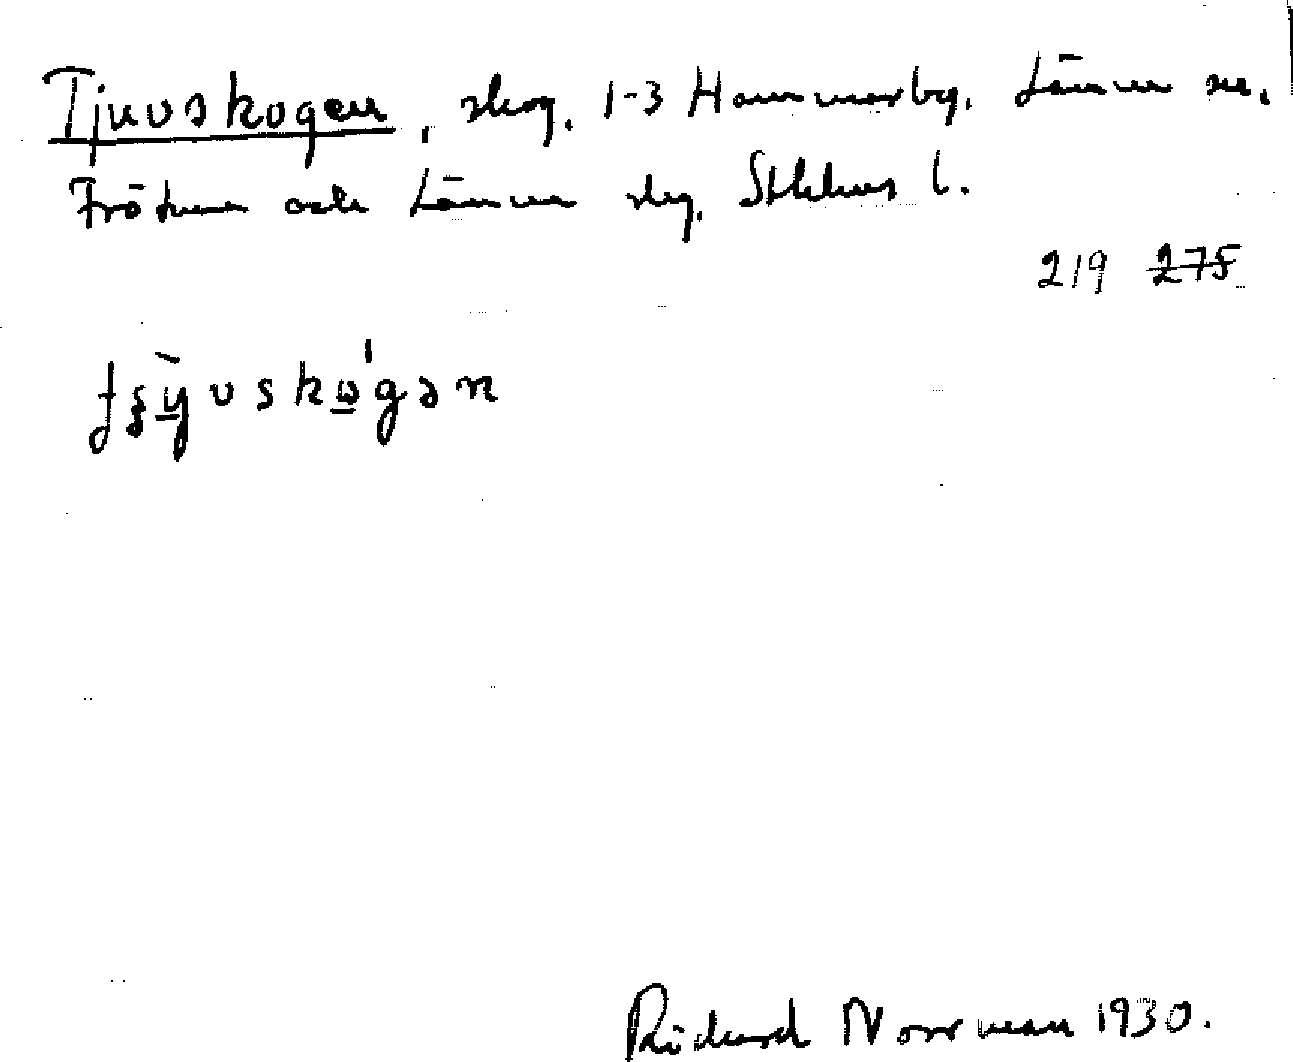 Tjuvskogen, skog, 1-3 Hammarby. Länna sn.
Frötuna och Länna skg. Sthlms l.
219 275
Rickard Norrman 1930.